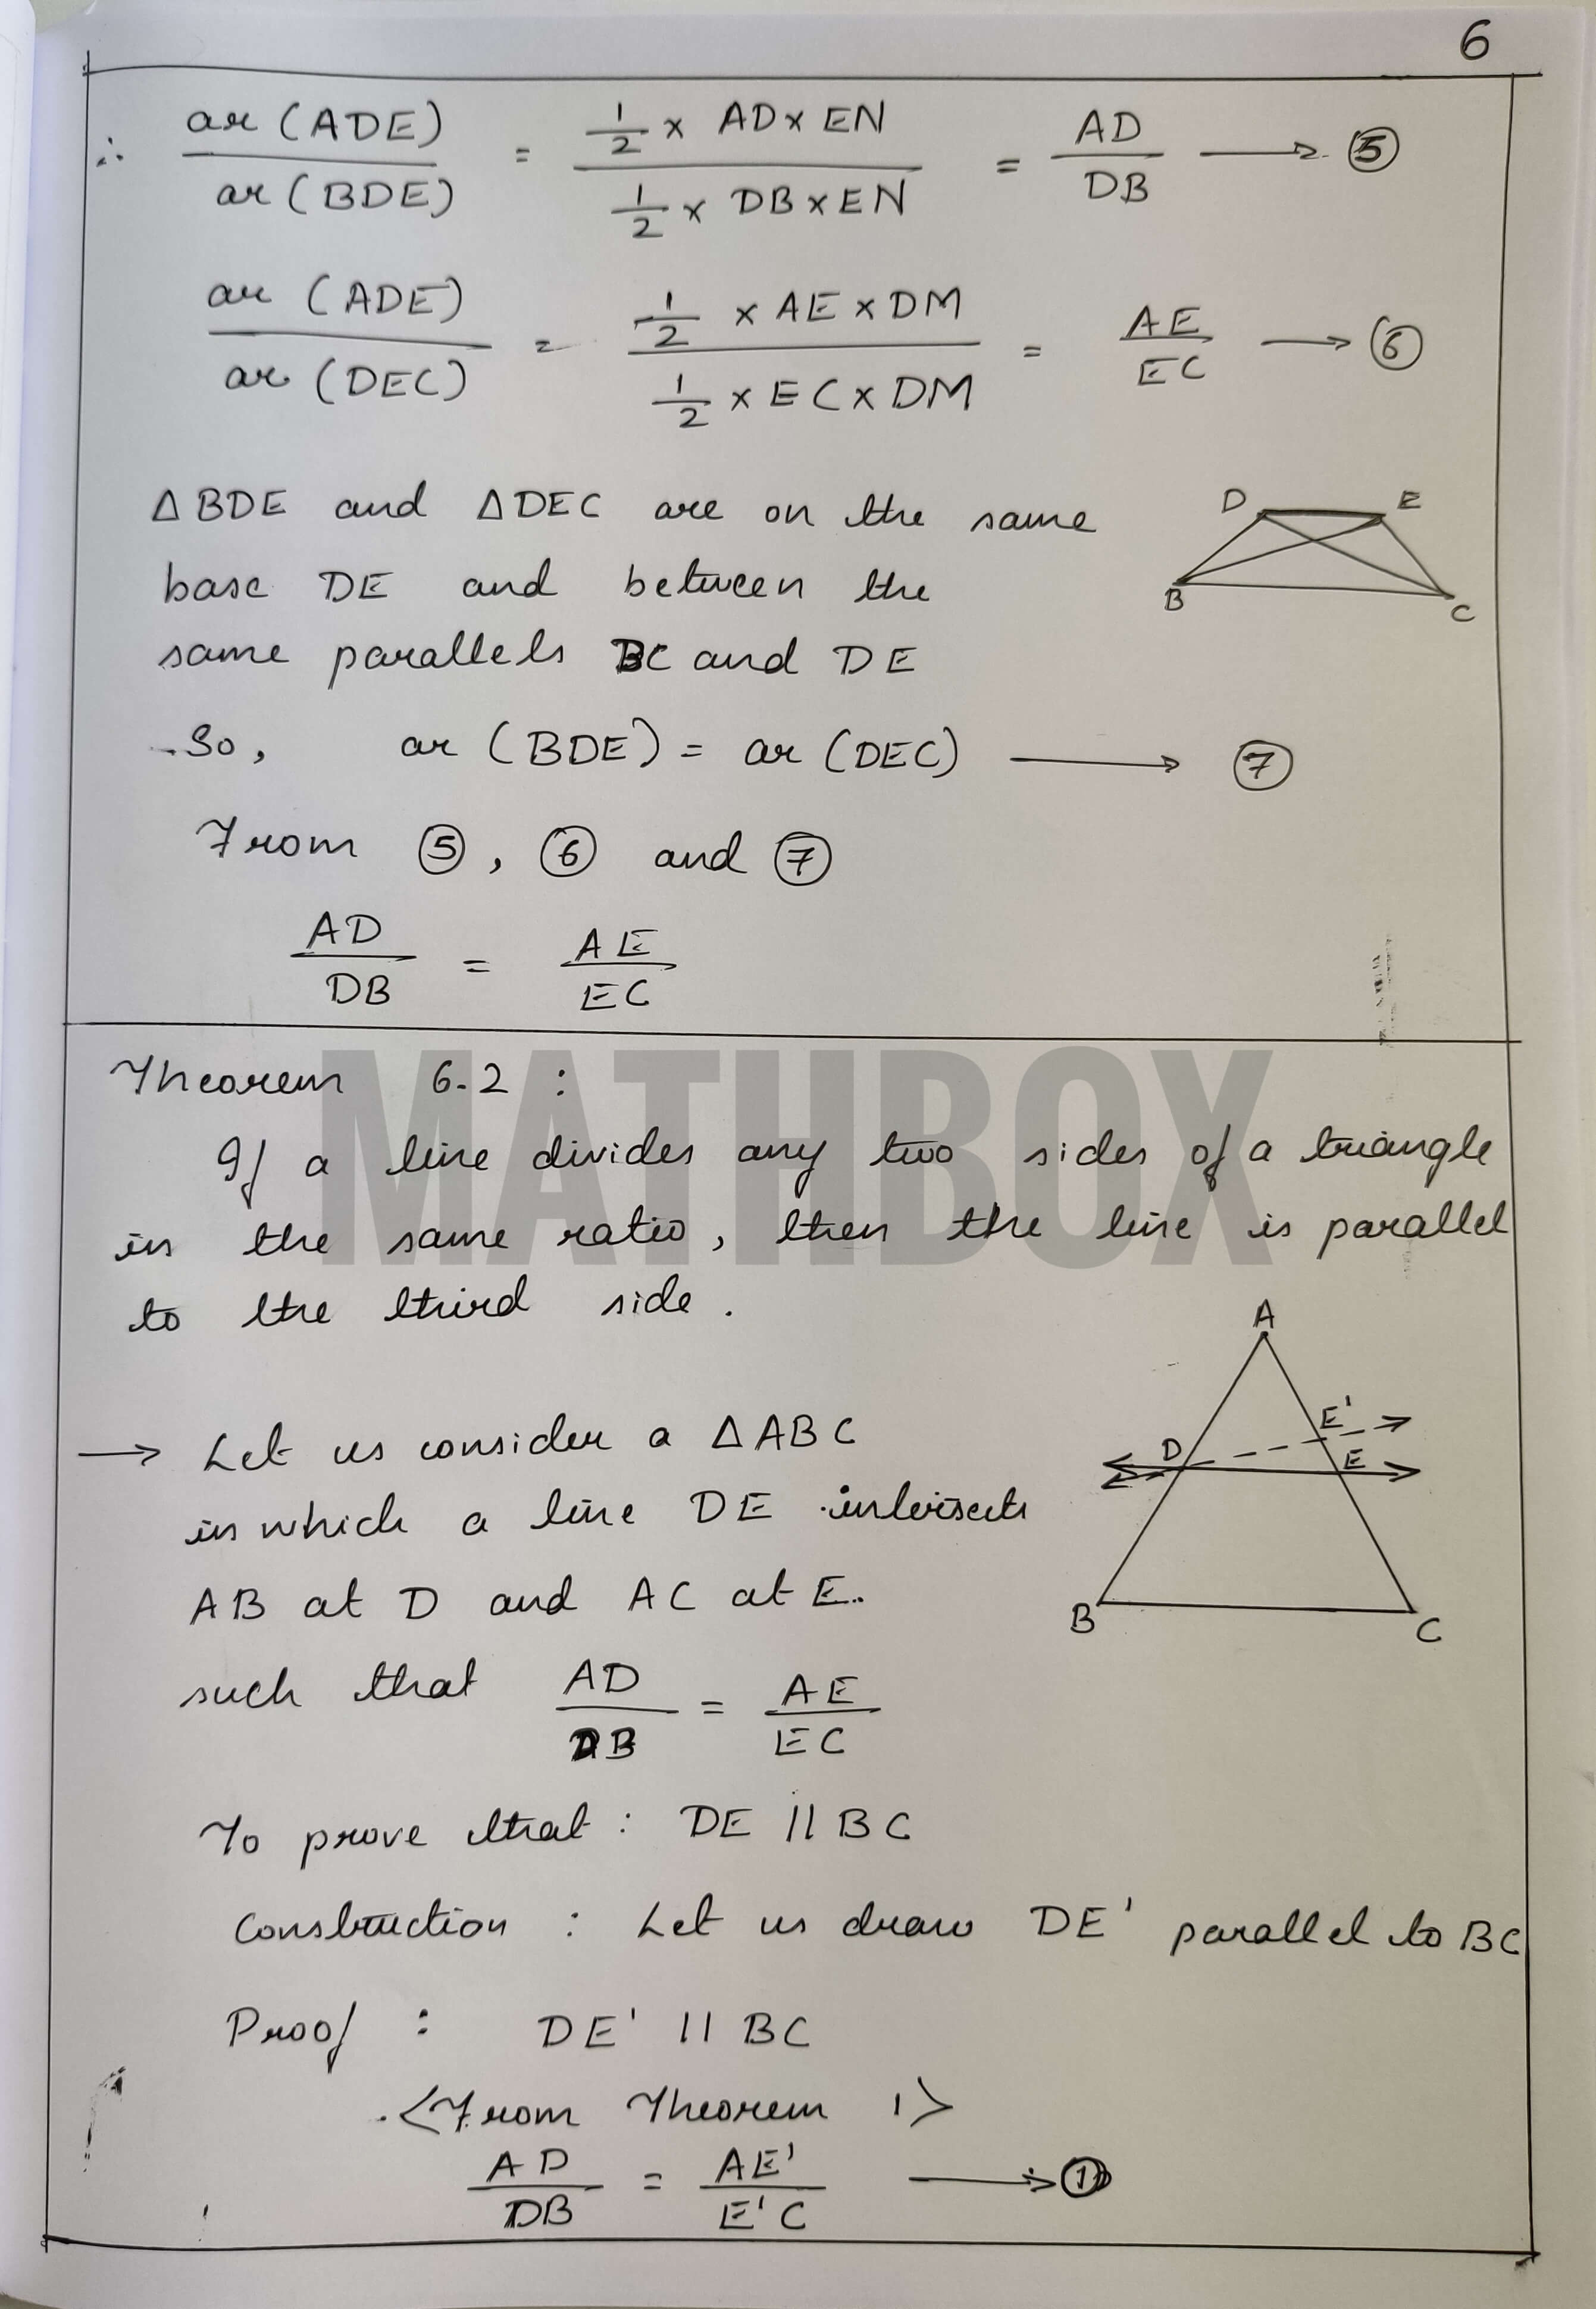 6
∴ ar (ADE) / ar (BDE) = 1/2 × AD × EN / 1/2 × DB × EN = AD / DB → ⑤
ar (ADE) / ar (DEC) = 1/2 × AE × DM / 1/2 × EC × DM = AE / EC → ⑥
Δ BDE and Δ DEC are on the same
base DE and between the
same parallels BC and DE
D E
B C
So, ar (BDE) = ar (DEC) → ⑦
From ⑤, ⑥ and ⑦
AD / DB = AE / EC
MATHBOX
Theorem 6.2 :
If a line divides any two sides of a triangle
in the same ratio, then the line is parallel
to the third side.
→ Let us consider a Δ ABC
in which a line DE intersects
AB at D and AC at E.
such that AD / DB = AE / EC
A
E'
D E
B C
To prove that : DE || BC
Construction : Let us draw DE' parallel to BC
Proof : DE' || BC
<From Theorem 1>
AD / DB = AE' / E'C → ①